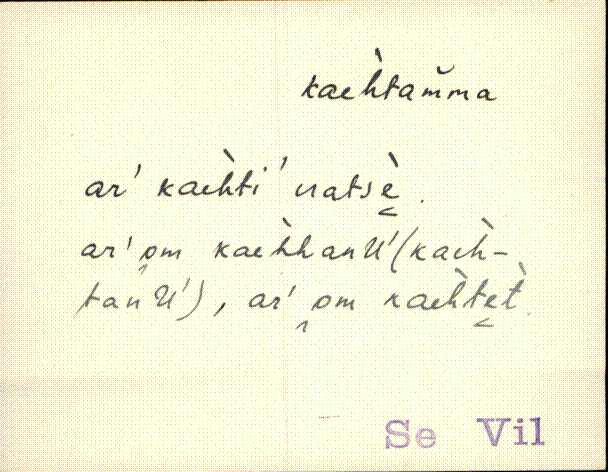 kaeh̀tam̆ma
ar' kaeh̀ti' uatsè̮.
ar' o̮m kaeh̀hanu' (kaeh̀-
tanu'), ar' o̮m kaeh̀te̮t̀.
Se Vil